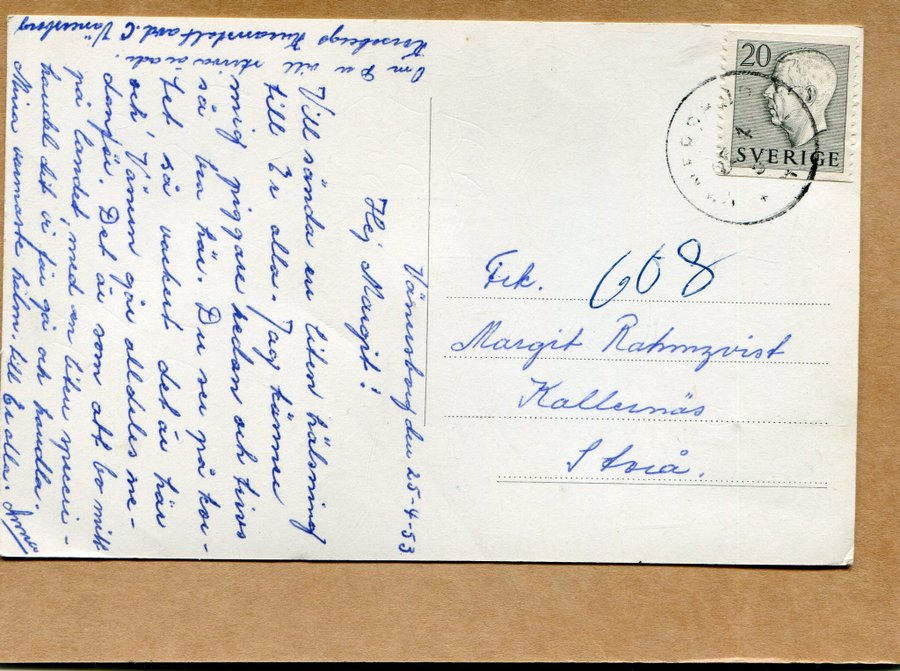 Vänersborg den 25-4-53
Hej Margit!
Vill sända en liten hälsning
till Er alla. Jag känner
mig piggare redan och trivs
så bra här. Du ser på kor-
tet så vackert det är här
och Vänern går alldeles ne-
danför. Det är som att bo mitt
på landet, med en liten speceri-
handel dit vi får gå och handla.
Mina varmaste hälsn. till Er alla.
Om Du vill skriva är adr.
Korsebergs Kuranstalt avd. C Vänersborg
20
SVERIGE
Frk. 608
Margit Rahmqvist
Kallernäs